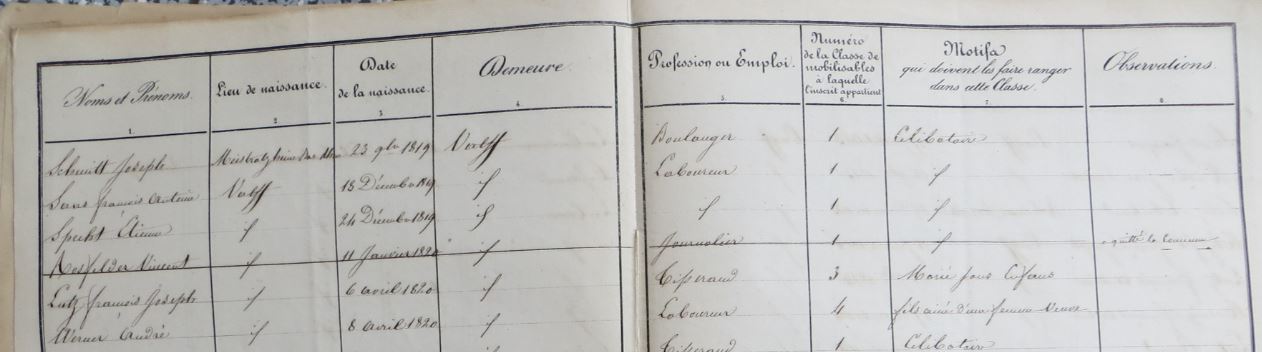 Noms et Prénoms. Lieu de naissance. Date de la naissance. Demeure. Profession ou Emploi. Numéro de la Classe de mobilisables à laquelle l'inscrit appartient Motifs qui doivent les faire ranger dans cette Classe. Observations.
1. 2 3 4 5. 6. 7. 8.
Schmitt Joseph Meistratzheim Bas Rhin 23 9bre 1819 Valff Boulanger 1 Célibataire
Sans françois Antoine Valff 18 Décembre 1819 if Laboureur 1 if
Specht Etienne if 24 Décembre 1819 if if 1 if
Rosfelder Vincent if 11 Janvier 1820 if Journalier 1 if a quitté la Commune
Lutz françois Joseph if 6 avril 1820 if Tisserand 3 Marié sans Enfans
Werner André if 8 avril 1820 if Laboureur 4 fils ainé d'une femme Veuve
Tisserand 1 Célibataire